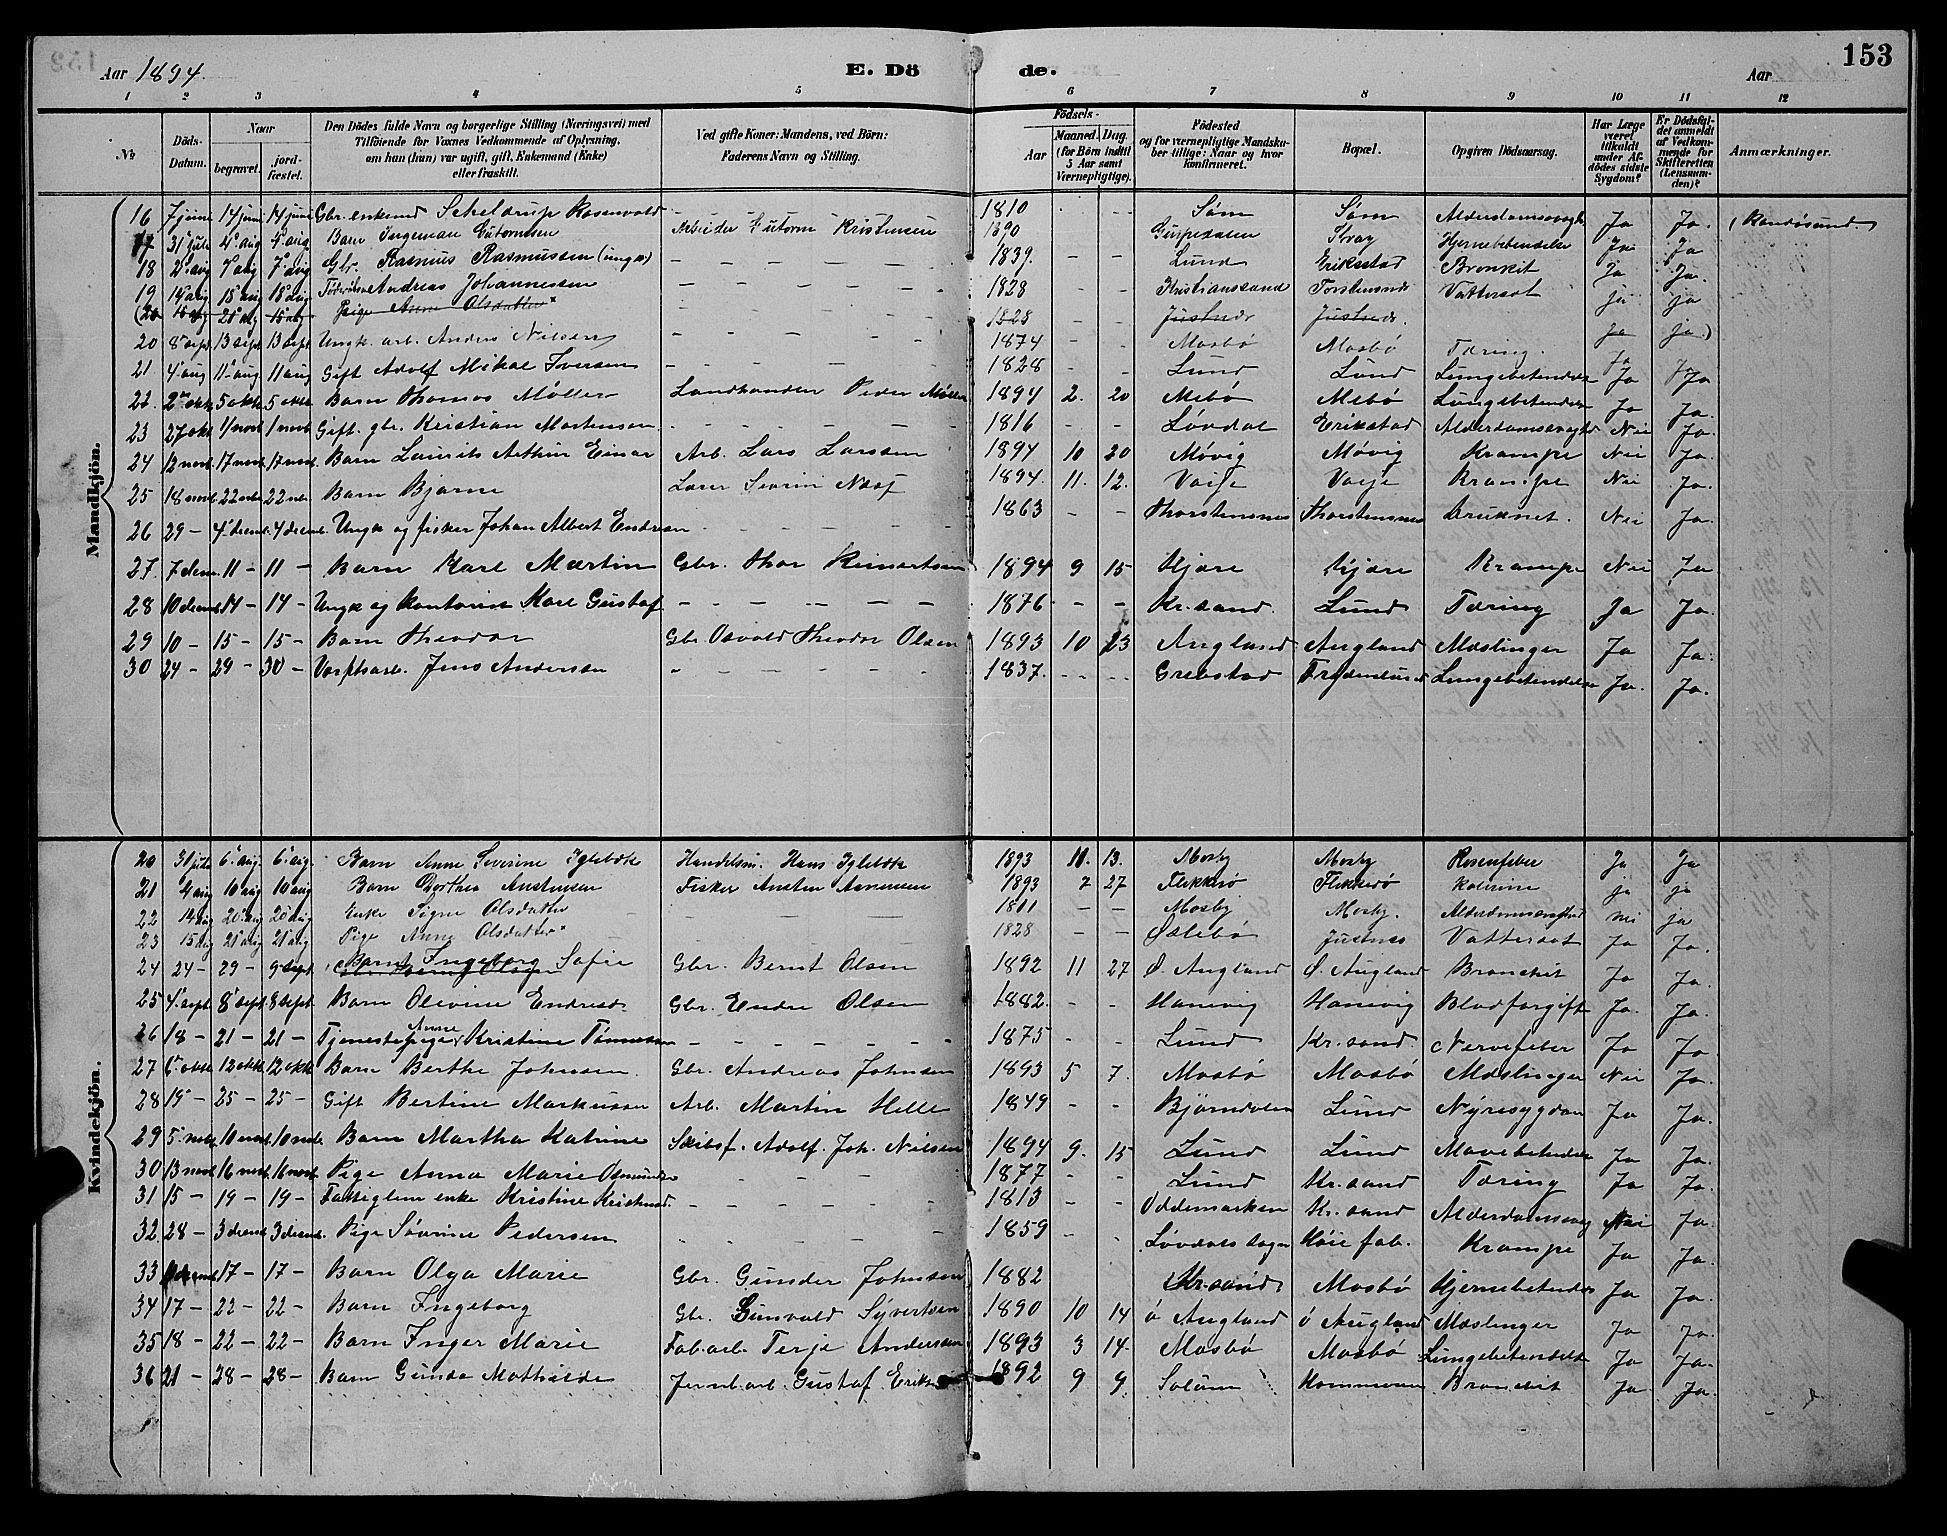 Aar 1894. E. Dö de. Aar 153
1 2 3 4 5 6 7 8 9 10 11 12
№ Döds-Datum. Naar begravet. jordfæstet. Den Dödes fulde Navn og borgerlige Stilling (Næringsvei) med Tilföiende for Voxnes Vedkommende af Oplysning, om han (hun) var ugift, gift, Enkemand (Enke) eller fraskilt. Ved gifte Koner: Mandens, ved Börn: Faderens Navn og Stilling. Födsels- Aar Maaned Dag (for Börn indtil 5 Aar samt Værnepligtige). Födested og for værnepligtige Mandskaber tillige: Naar og hvor konfirmeret. Bopæl. Opgiven Dödsaarsag. Har Læge været tilkaldt under Afdödes sidste Sygdom? Er Dödsfaldet anmeldt af Vedkommende for Skifteretten (Lensmanden)? Anmærkninger.
Mandkjön.
16 7 juni 14 juni 14 juni Gbr. enkemd Scheldrup Rosenvold - 1810 - - Søm Søm Alderdomssvagh Ja Ja. (Randösund.
17 31 juli 4 aug 4 aug Barn Ingeman Gutormsen Arbeider Gutorm Kristensen 1890 Stray Hjernebetendelse Ja Ja
18 2 aug 7 aug 7 aug Gbr. Rasmus Rasmussen (ungk) - - - 1839. - - Lund Eriksstad Bronkit Ja Ja.
19 14 aug 18 aug 18 aug Andreas Johannessen - - - 1828 - - Kristianssand Torstensnes Vattersot ja ja
(20 15 aug 21 aug 15 aug Pige Anna Olsdatter - - - 1828 - - Justnes Justnes. ja ja)
20 8 sept 13 sept 13 sept Ungk. arb. Anders Nilsen - - - 1874 - - Mosbö Mosbö Tæring. Ja
21 4 aug 11 aug 11 aug Gift Adolf Mikal Iversen - - - 1828 - - Lund Lund Lungebetendelse Ja Ja
22. 2 okt. 5 okt. 5 okt. Barn Thomas Møller Landhandler Peder Møller 1894 2. 20 Mebö Mebö Lungebetendelse Ja Ja.
23 27 okt 1 novb. 1 novb. Gift. gbr. Kristian Mortensen. - - - 1816 - - Løvdal Erikstad Alderdomssvaghd Nei Ja.
24 12 novb. 17 novb. 17 novb. Barn Laurits Arthur Einar Arb. Lars Larssen 1894 10 20 Møvig Møvig Krampe Nei Ja.
25 18 novb. 22 nvb. 22 nvb. Barn Bjarne Lærer Severin Næss 1894. 11. 12. Voije Voije Krampe Nei Ja.
26 29 - 4 decmb. 4 decmb. Ungk og fisker Johan Albert Endresen - - - 1863 - - Thorstensnes Thorstensnes Druknet. Nei Ja.
27. 7 dcm. 11 - 11 - Barn Karl Martin Gbr. Thor Reinertsen 1894 9 15 Kjære Kjære Krampe Nei Ja
28 10 decmb 14 - 14 - Ungk og kontorist Karl Gustaf - - - 1876 - - Kr. sand. Lund Tæring Ja Ja.
29 10 - 15 - 15 - Barn Theodor Gbr Osvald Theodor Olsen 1893 10 23 Augland Augland Mæslinger Ja Ja.
30 24 - 29 - 30 - Værftsarb. Jens Andersen - - - 1837. - - Grebstad Lungebetendelse Ja. Ja.
Kvindekjön.
20 31 juli 6 aug. 6 aug. Barn Anne Severine Iglebæk Handelsm. Hans Iglebæk 1893 11. 13. Mosby Mosby Rosenfeber Ja Ja
21 4 aug 10 aug 10 aug Barn Dorthea Austensen Fisker Austen Aanensen 1893 7 27 Flekkerö Flekkerö Kolerine ja ja
22 14 aug 20 aug 20 aug Enke Signe Olsdatter - - - 1811 - - Mosby Mosby. Alderdomssvaghed nei ja
23 15 aug 21 aug 21 aug Pige Anne Olsdatter - - - 1828 - - Sælebö Justnes Vattersot Ja Ja.
24 24 - 29 - 9 sept. Barn Ingeborg Sofie Gbr. Bernt Olsen 1892 11 27 Ø. Augland Ø. Augland Bronchit Ja Ja.
25 4 sept 8 sept. 8 sept. Barn Olevine Endresd. Gbr. Endre Olsen 1882. - - Hanevig Hanevig Blodforgift Ja. Ja.
26 18 - 21 - 21 - Tjenestepige Anne Kristine Tønnesen - - - 1875 - - Lund Kr. sand. Nervefeber Ja Ja
27 6 okt. 12 okt. 12 okt. Barn Berthe Johnsen. Gbr. Andreas Johnsen 1893 5 7. Mosbö Mosbö Mæslinger Nei Ja.
28 19 - 25 - 25 - Gift Bertine Markussen Arb. Martin Helle 1849 - - Bjørndalen Lund Nyresygdom Ja Ja.
29 5 novb. 10 novb. 10 novb. Barn Martha Katrine Skibsf. Adolf. Joh. Nilsen 1894 9. 15 Lund Lund Mavebetendelse Ja Ja.
30 13 novb. 16 novb. 16 novb. Pige Anna Marie Osmundsen - - - 1877 - - Lund Kr. sand Tæring Ja Ja.
31 15 - 19 - 19 - Fattiglem enke Kristine Kristensd. - - - 1813 - - Oddemarken Kr. sand Alderdomssvag Nei Ja.
32. 28 - 3 decmb. 3 decmb. Pige Sövrine Pedersen - - - 1859 - - Løvdals sogn Höie fab. Krampe Ja Ja.
33 17 - 17 - Barn Olga Marie Gbr. Gunder Johnsen 1882 Kr. sand Mosbö Hjernebetendelse Ja Ja.
34 17 - 22 - 22 - Barn Ingeborg Gbr. Gunvald Syvertsen 1890 10 14 Ö Augland Ö Augland Mæslinger Ja Ja.
35 18 - 22 - 22 - Barn Inger Marie Fab. arb. Terje Andersen 1893 3 14. Mosbö Mosbö Lungebetendelse Ja Ja.
36 21 - 28 - 28 - Barn Gunda Mathilde Jernb. arb. Gustaf Erik 1892 9 9. Solum Bronchit Ja Ja.